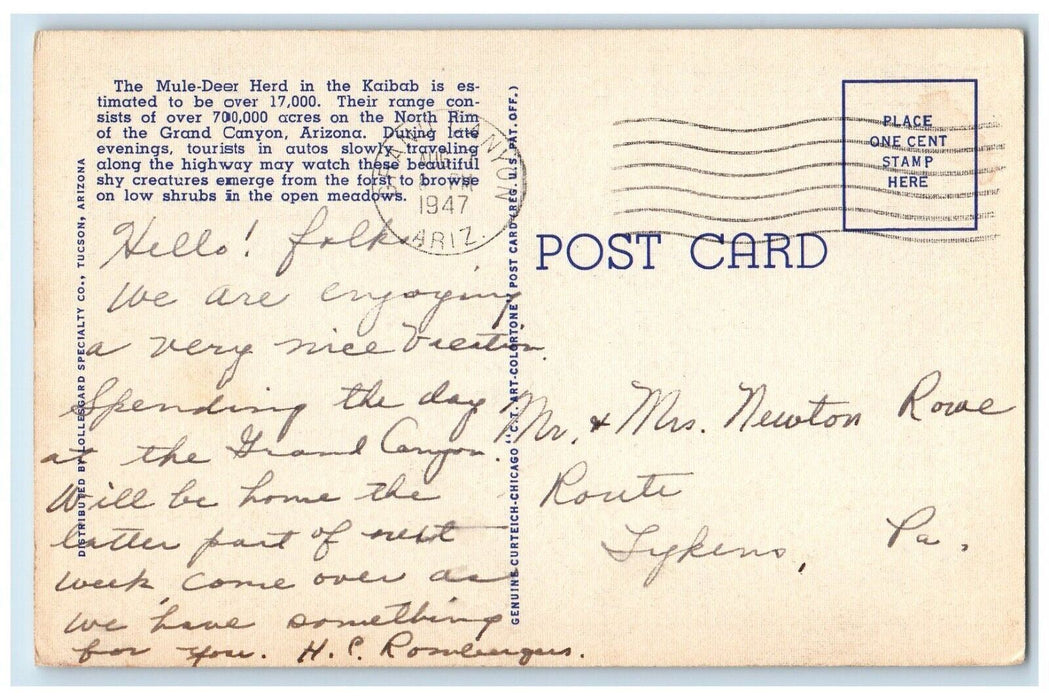 The Mule-Deer Herd in the Kaibab is es-
timated to be over 17,000. Their range con-
sists of over 700,000 acres on the North Rim
of the Grand Canyon, Arizona. During late
evenings, tourists in autos slowly traveling
along the highway may watch these beautiful
shy creatures emerge from the forst to browse
on low shrubs in the open meadows.
DISTRIBUTED BY LOLLESGARD SPECIALTY CO., TUCSON, ARIZONA
Hello! folks,
We are enjoying
a very nice Vacation.
Spending the day
at the Grand Canyon.
Will be home the
latter part of next
week, come over as
we have something
for you. H. C. Rombergers.
GENUINE CURTEICH-CHICAGO "C.T. ART-COLORTONE" POST CARD (REG. U.S. PAT. OFF.)
GRAND CANYON
AUG
PM
1947
ARIZ.
PLACE
ONE CENT
STAMP
HERE
POST CARD
Mr. & Mrs. Newton Rowe
Route
Lykens, Pa.